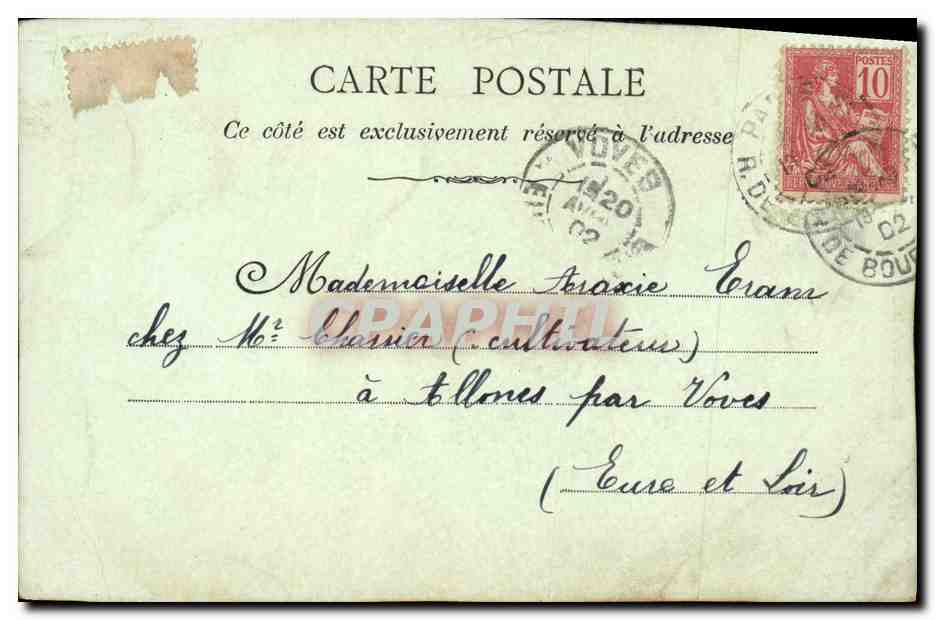 CARTE POSTALE
Ce côté est exclusivement réservé à l'adresse
POSTES
10
VOVES
20
AVRIL
02
R. DE
02
DE BOUR
Mademoiselle Araxie Eram
CPAPHIL
chez Mr Chassier (cultivateur)
à Allones par Voves
(Eure et Loir)